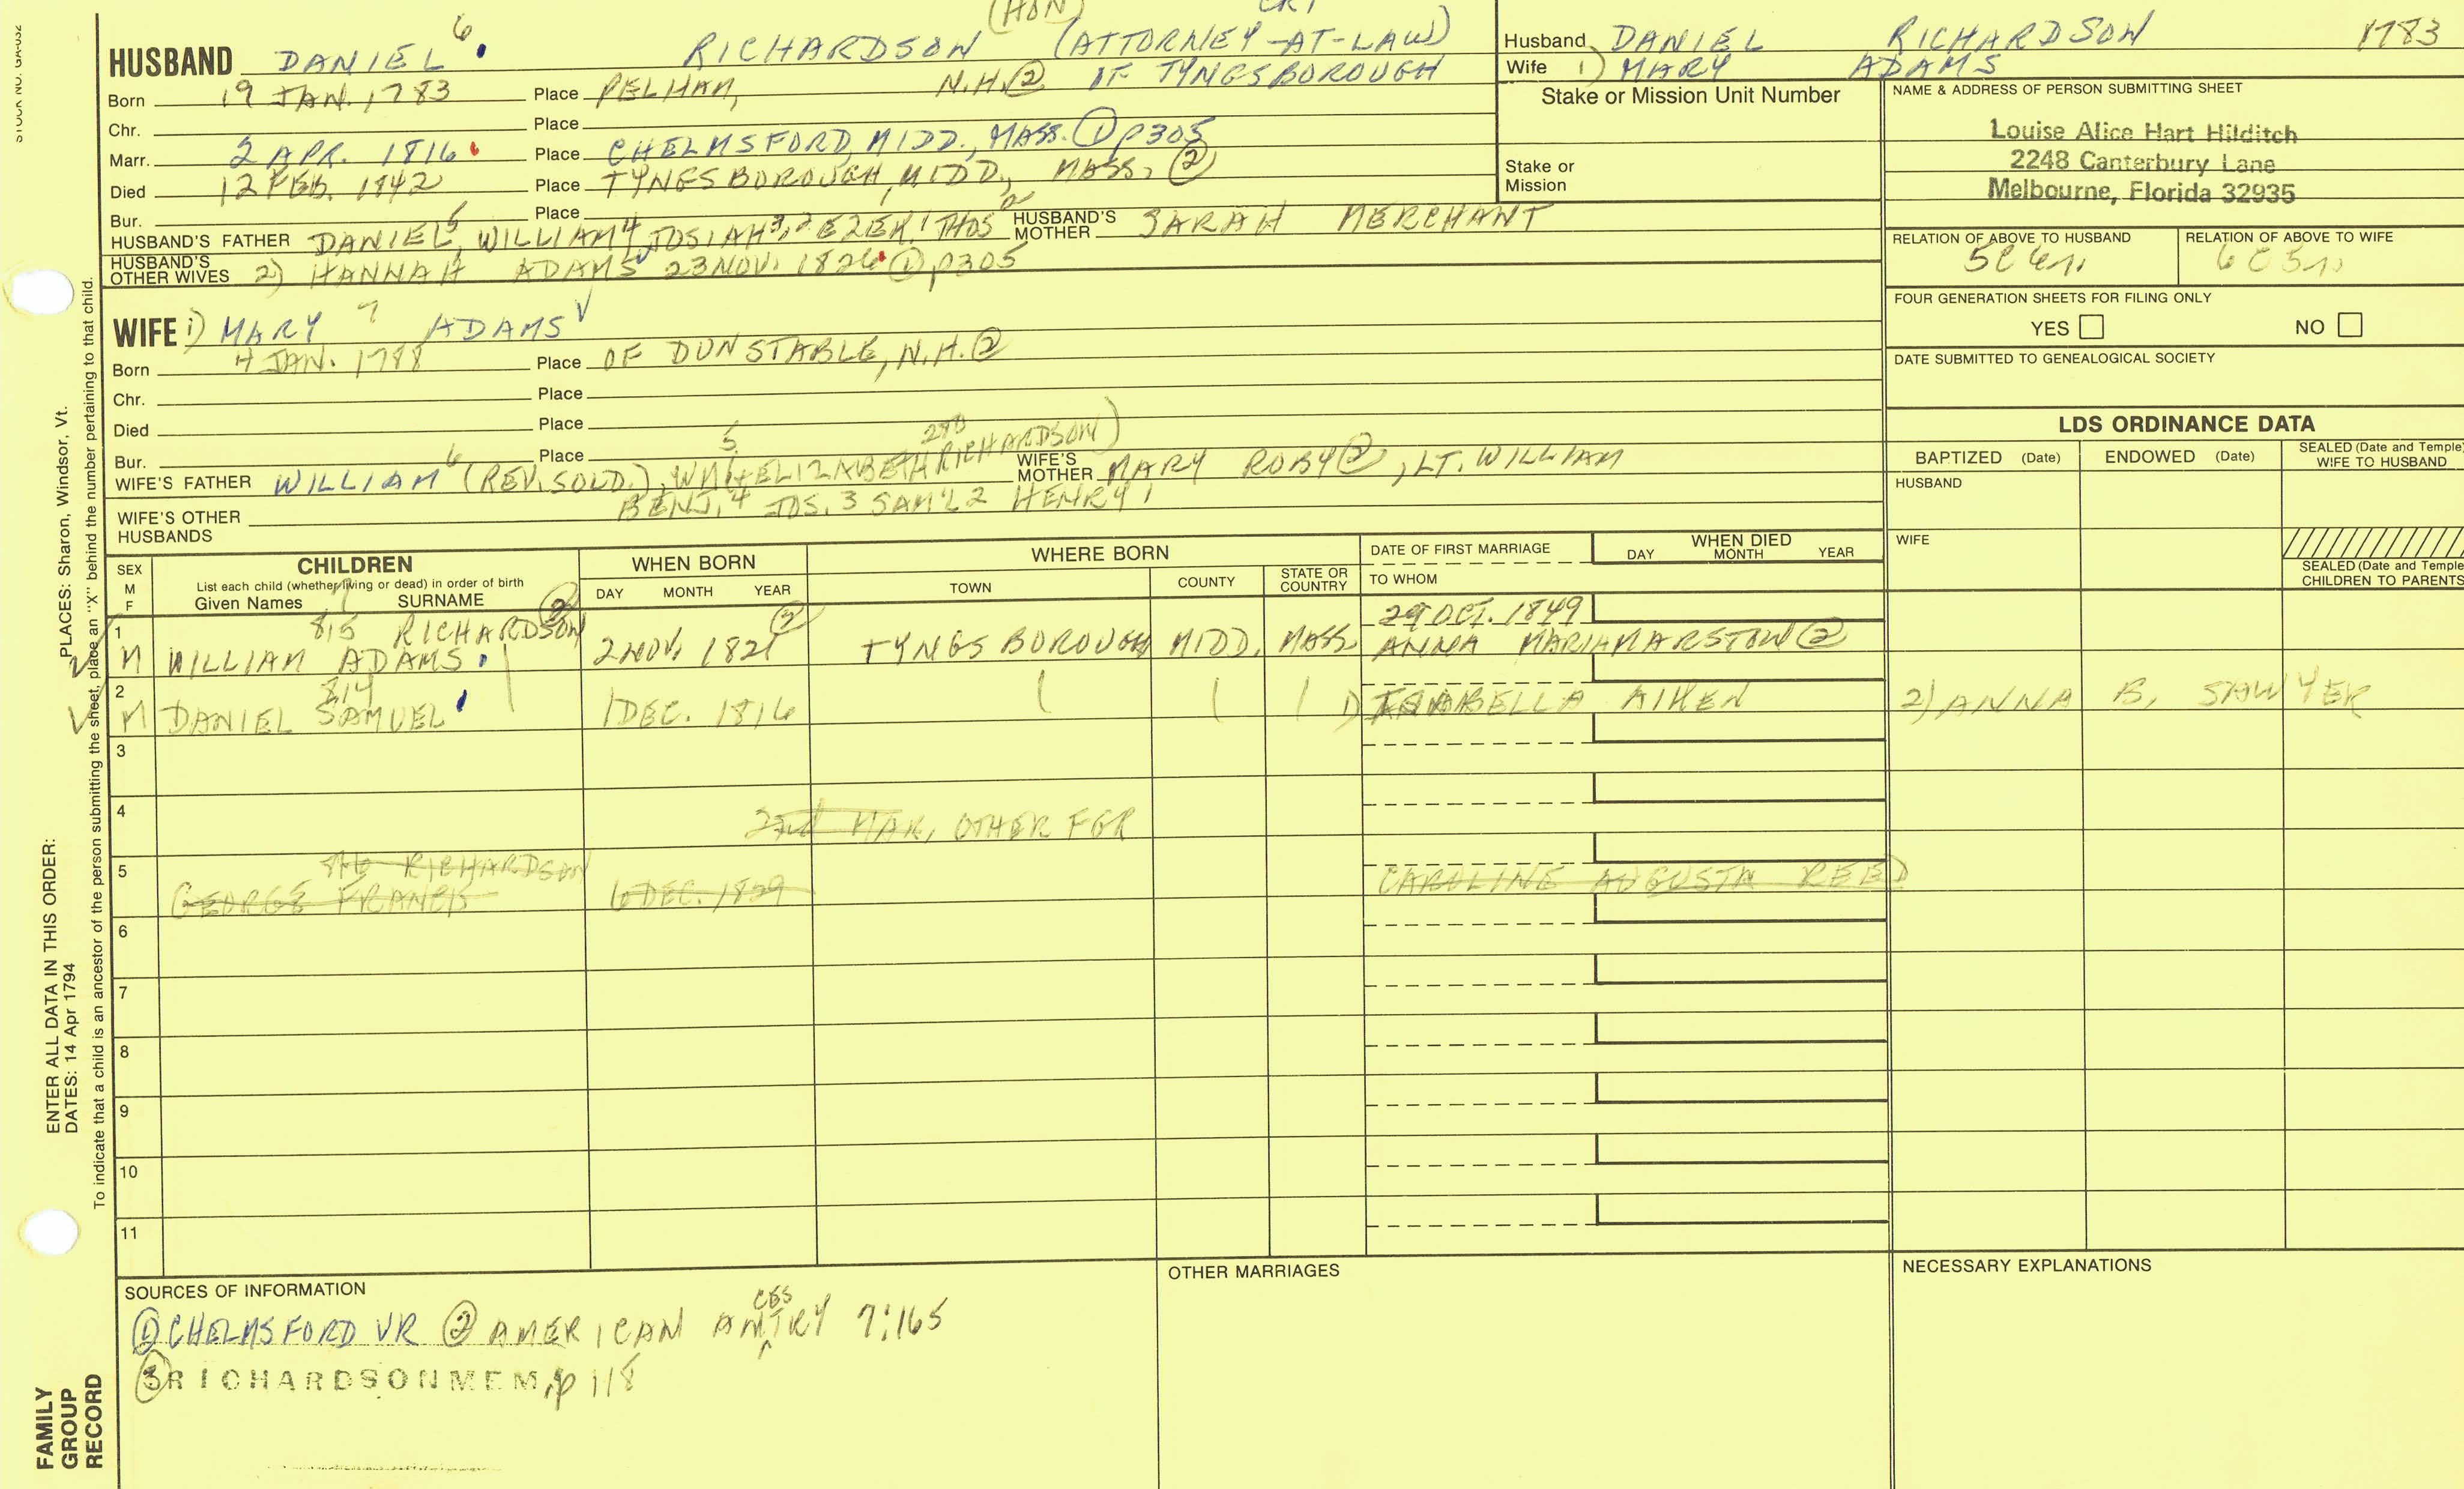 (HON)
HUSBAND DANIEL 6 RICHARDSON (ATTORNEY-AT-LAW)
Born 19 JAN. 1783 Place PELHAM, N.H. ② OF TYNGSBOROUGH
Chr. Place
Marr. 2 APR. 1816 Place CHELMSFORD, MIDD., MASS. ① p305
Died 12 FEB. 1842 Place TYNGSBOROUGH, MIDD., MASS. ②
Bur. Place
HUSBAND'S FATHER DANIEL 5, WILLIAM 4, JOSIAH 3, 2 EZEK. 1 THOS HUSBAND'S MOTHER SARAH MERCHANT
HUSBAND'S OTHER WIVES 2) HANNAH ADAMS 23 NOV. 1826 ① p305
WIFE 1) MARY 7 ADAMS
Born 4 JAN. 1788 Place OF DUNSTABLE, N.H. ②
Chr. Place
Died Place
Bur. Place
WIFE'S FATHER WILLIAM 6 (REV. SOLD.), WM 5 (ELIZABETH RICHARDSON) WIFE'S MOTHER MARY ROBY ②, LT. WILLIAM
BENJ. 4 JOS. 3 SAM'L 2 HENRY 1
WIFE'S OTHER HUSBANDS
Husband DANIEL RICHARDSON 1783
Wife 1) MARY ADAMS
Stake or Mission Unit Number
Stake or Mission
NAME & ADDRESS OF PERSON SUBMITTING SHEET
Louise Alice Hart Hilditch
2248 Canterbury Lane
Melbourne, Florida 32935
RELATION OF ABOVE TO HUSBAND RELATION OF ABOVE TO WIFE
5C4r. 6C5r.
FOUR GENERATION SHEETS FOR FILING ONLY
YES NO
DATE SUBMITTED TO GENEALOGICAL SOCIETY
LDS ORDINANCE DATA
BAPTIZED (Date) ENDOWED (Date) SEALED (Date and Temple) WIFE TO HUSBAND
HUSBAND
WIFE
SEALED (Date and Temple) CHILDREN TO PARENTS
SEX M F CHILDREN WHEN BORN WHERE BORN DATE OF FIRST MARRIAGE WHEN DIED
List each child (whether living or dead) in order of birth
Given Names SURNAME DAY MONTH YEAR TOWN COUNTY STATE OR COUNTRY TO WHOM DAY MONTH YEAR
1 815 RICHARDSON ② 29 OCT. 1849
M WILLIAM ADAMS 2 NOV. 1821 TYNGSBOROUGH MIDD. MASS. ANNA MARIA MARSTON ②
2 814
M DANIEL SAMUEL 1 DEC. 1816 1) ISABELLA AIKEN 2) ANNA B. SAWYER
3
4 2nd MAR, OTHER FGR
5 816 RICHARDSON
GEORGE FRANCIS 6 DEC. 1829 CAROLINE AUGUSTA REED
6
7
8
9
10
11
SOURCES OF INFORMATION
① CHELMSFORD VR ② AMERICAN ANCESTRY 7:165
③ RICHARDSON MEM, p 118
OTHER MARRIAGES
NECESSARY EXPLANATIONS
PLACES: Sharon, Windsor, Vt.
ENTER ALL DATA IN THIS ORDER:
DATES: 14 Apr 1794
To indicate that a child is an ancestor of the person submitting the sheet, place an "X" behind the number pertaining to that child.
FAMILY
GROUP
RECORD